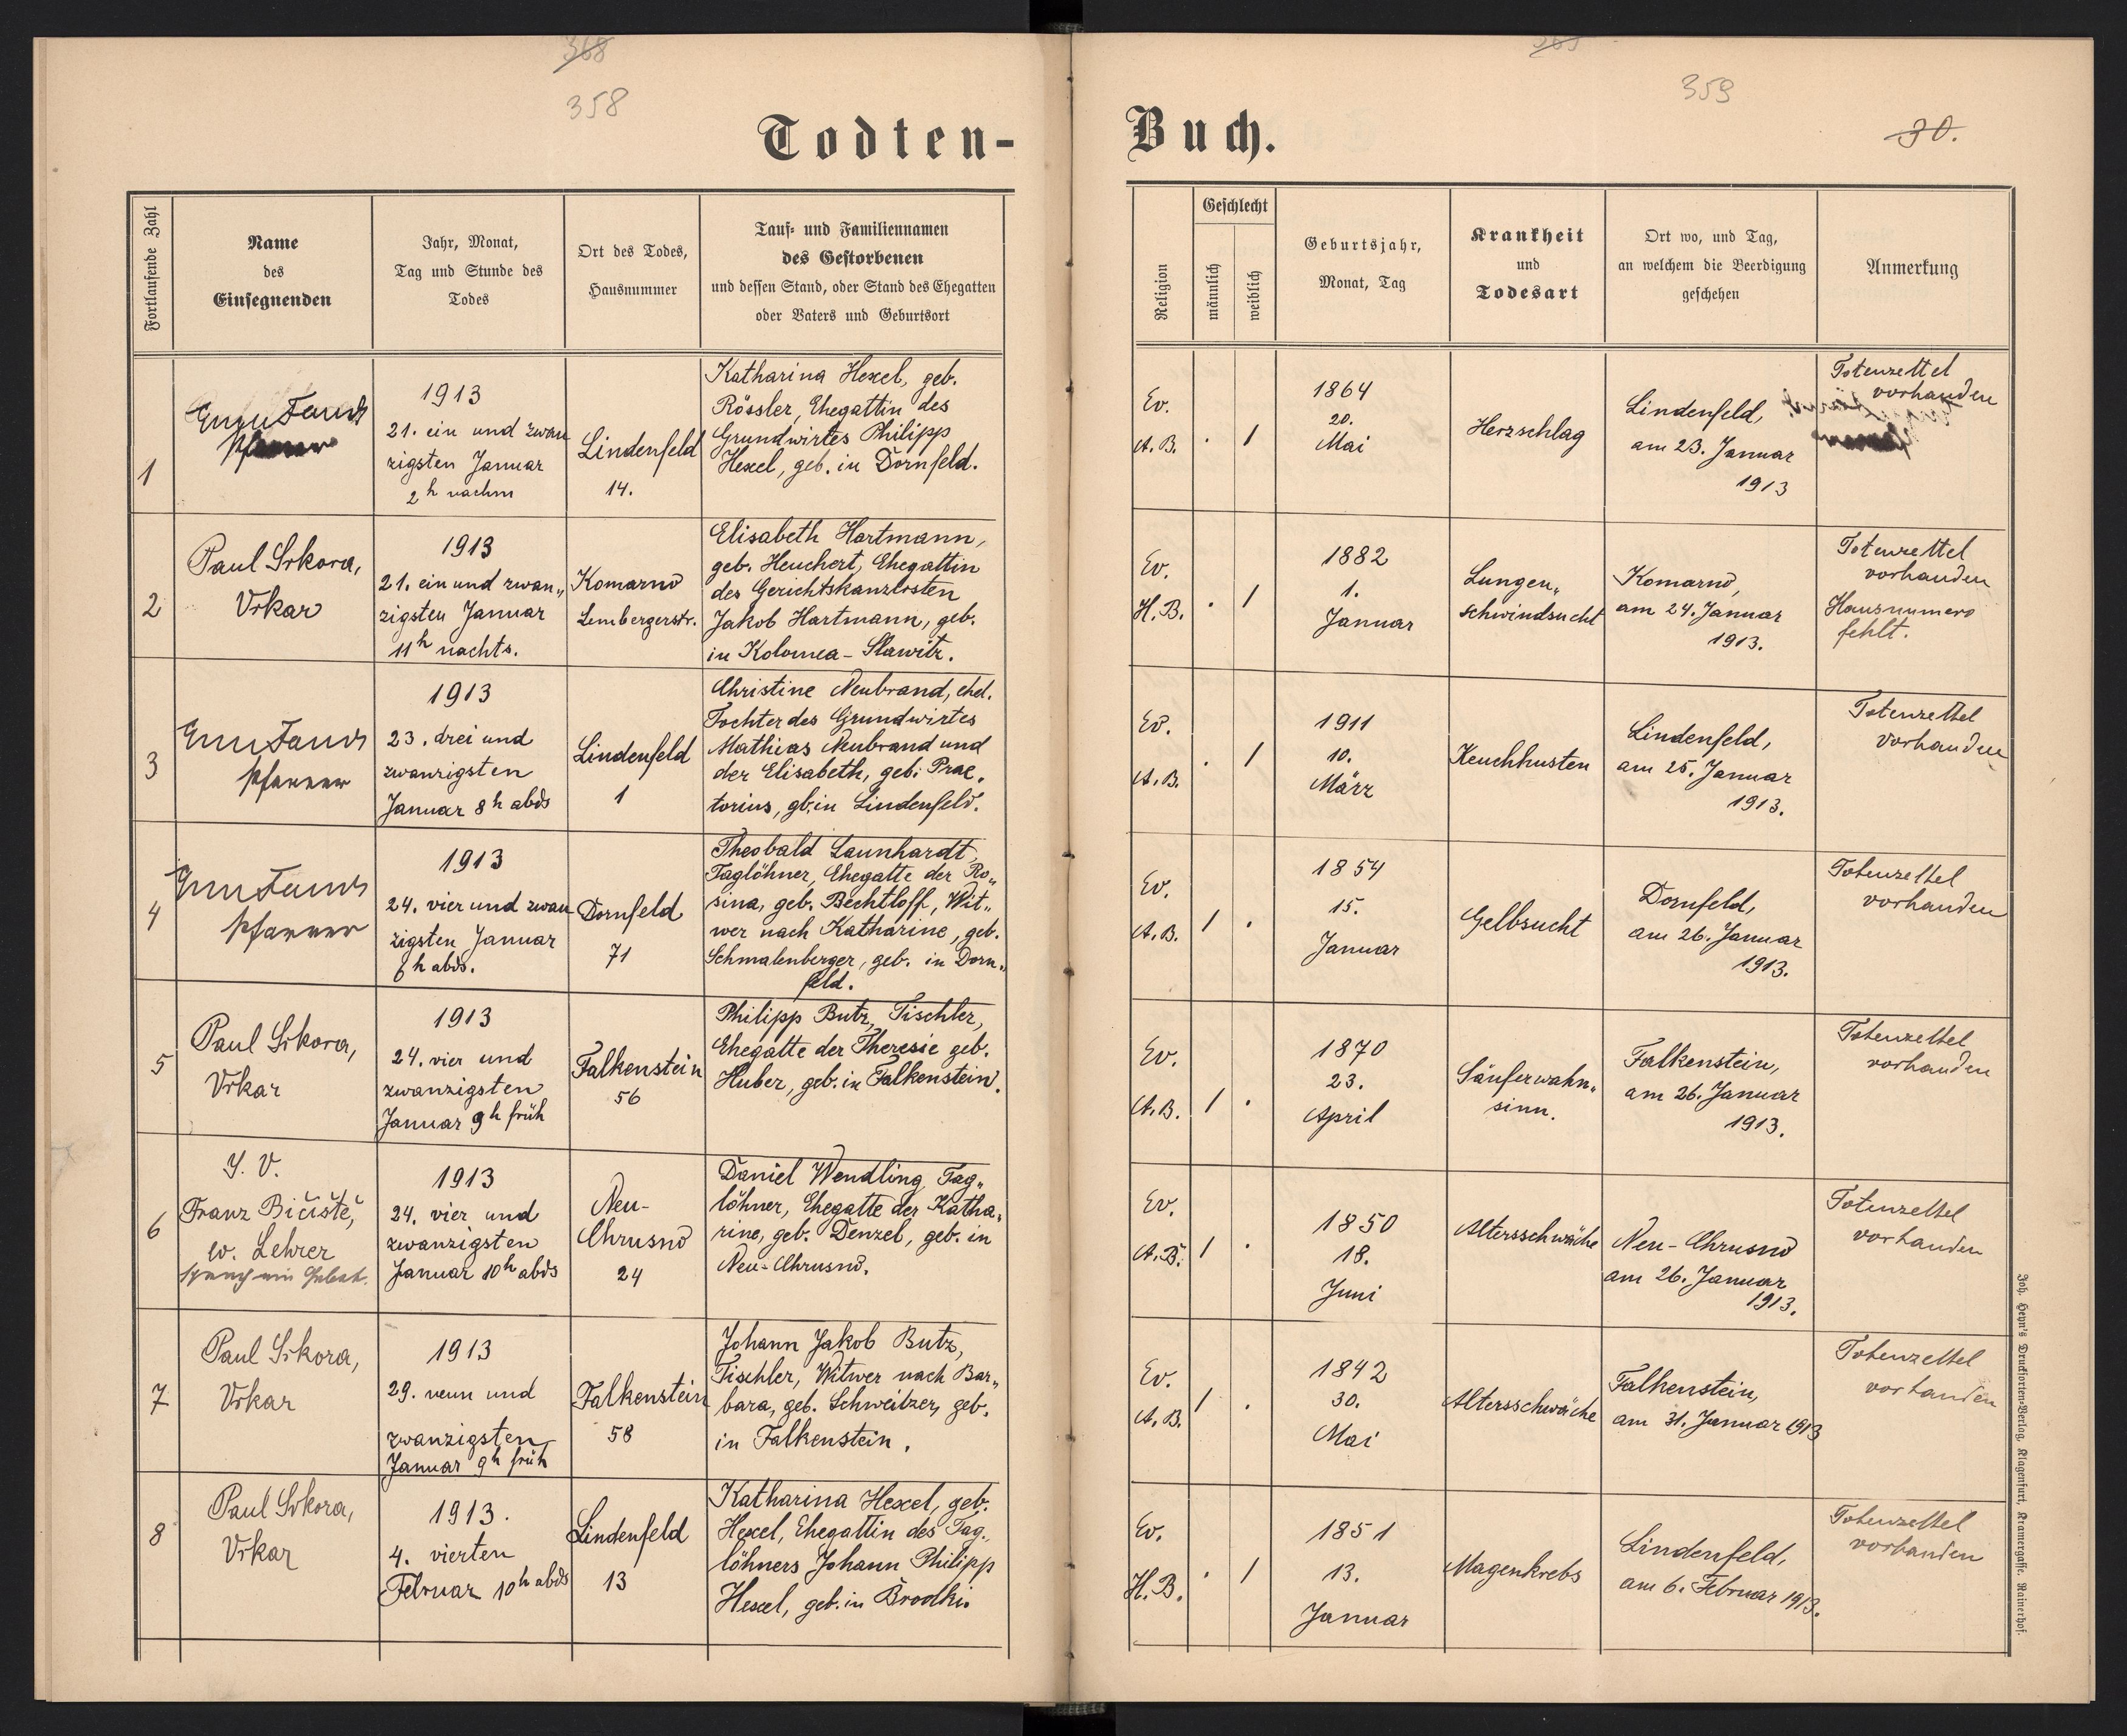 368
358
Todten-
Fortlaufende Zahl
Name
des
Einsegnenden
Jahr, Monat,
Tag und Stunde des
Todes
Ort des Todes,
Hausnummer
Tauf- und Familiennamen
des Gestorbenen
und dessen Stand, oder Stand des Ehegatten
oder Vaters und Geburtsort
1
Pfarrer
1913
21. ein und zwan
zigsten Januar
2h nachm
Lindenfeld
14.
Katharina Hexel, geb.
Rössler, Ehegattin des
Grundwirtes Philipp
Hexel, geb. in Dornfeld.
2
Paul Sikora,
Vikar
1913
21. ein und zwan„
zigsten Januar
11h nachts.
Komarno
Lembergerstr.
Elisabeth Hartmann,
geb. Heuchert, Ehegattin
des Gerichtskanzlisten
Jakob Hartmann, geb.
in Kolomea - Slawitz.
3
Pfarrer
1913
23. drei und
zwanzigsten
Januar 8h abds
Lindenfeld
1
Christine Neubrand, ehel.
Tochter des Grundwirtes
Mathias Neubrand und
der Elisabeth, geb. Prae„
torius, gb. in Lindenfeld.
4
Pfarrer
1913
24. vier und zwan
zigsten Januar
6h abds.
Dornfeld
71
Theobald Launhardt,
Taglöhner, Ehegatte der Ro„
sina, geb. Bechtloff, Wit„
wer nach Katharine, geb.
Schmalenberger, geb. in Dorn„
feld.
5
Paul Sikora,
Vikar
1913
24. vier und
zwanzigsten
Januar 9h früh
Falkenstein
56
Philipp Butz, Tischler,
Ehegatte der Theresie geb.
Huber, geb. in Falkenstein.
6
I. V.
Franz Bičiště,
w. Lehrer
sprach ein Gebet.
1913
24. vier und
zwanzigsten
Januar 10h abds
Neu-
Chrusno
24
Daniel Wendling, Tag„
löhner, Ehegatte der Katha„
rine, geb. Denzel, geb. in
Neu-Chrusno.
7
Paul Sikora,
Vikar
1913
29. neun und
zwanzigsten
Januar 9h früh
Falkenstein
58
Johann Jakob Butz,
Tischler, Witwer nach Bar„
bara, geb. Schweitzer, geb.
in Falkenstein.
8
Paul Sikora,
Vikar
1913.
4. vierten
Februar 10h abds
Lindenfeld
13
Katharina Hexel, geb.
Hexel, Ehegattin des Tag„
löhners Johann Philipp
Hexel, geb. in Brodki.
359
30.
Buch.
Religion
Geschlecht
männlich
weiblich
Geburtsjahr,
Monat, Tag
Krankheit
und
Todesart
Ort wo, und Tag,
an welchem die Beerdigung
geschehen
Anmerkung
Ev.
A.B.
· 1
1864
20.
Mai
Herzschlag
Lindenfeld,
am 23. Januar
1913
Totenzettel
vorhanden
Ev.
H.B.
· 1
1882
1.
Januar
Lungen„
schwindsucht
Komarno,
am 24. Januar
1913.
Totenzettel
vorhanden
Hausnumero
fehlt.
Ev.
A.B.
· 1
1911
10.
März
Keuchhusten
Lindenfeld,
am 25. Januar
1913.
Totenzettel
vorhanden
Ev.
A.B.
1 ·
1854
15.
Januar
Gelbsucht
Dornfeld,
am 26. Januar
1913.
Totenzettel
vorhanden
Ev.
A.B.
1 ·
1870
23.
April
Säuferwahn„
sinn.
Falkenstein,
am 26. Januar
1913.
Totenzettel
vorhanden
Ev.
A.B.
1 ·
1850
18.
Juni
Altersschwäche
Neu-Chrusno
am 26. Januar
1913.
Totenzettel
vorhanden
Ev.
A.B.
1 ·
1842
30.
Mai
Altersschwäche
Falkenstein,
am 31. Januar 1913
Totenzettel
vorhanden
Ev.
H.B.
· 1
1851
13.
Januar
Magenkrebs
Lindenfeld,
am 6. Februar 1913.
Totenzettel
vorhanden
Joh. Heyn's Drucksorten-Verlag, Klagenfurt, Kramergasse, Rainerhof.